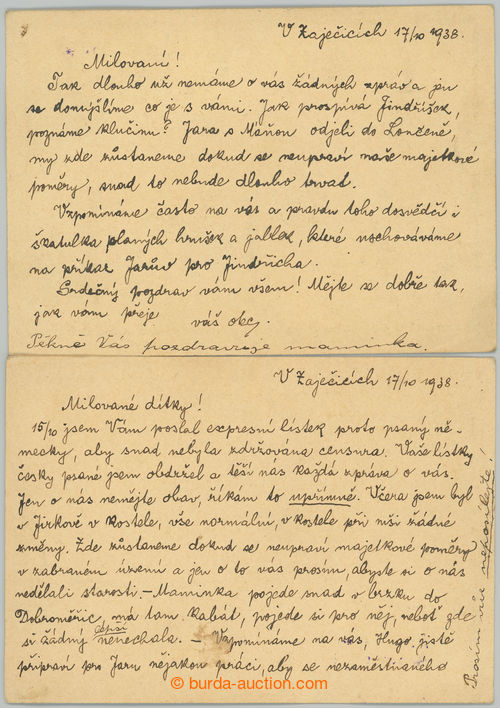 V Zaječicích 17/10 1938.
Milovaní!
Tak dlouho už nemáme o vás žádných zpráv a jen
se domýšlíme co je s vámi. Jak prospívá Jindříšek,
poznáme klučinu? Jara s Máňou odjeli do Lenčeně,
my zde zůstaneme dokud se neupraví naše majetkové
poměry, snad to nebude dlouho trvat.
Vzpomínáme často na vás a pravdu toho dosvědčí i
škatulka planých hrušek a jablek, které uschováváme
na příkaz Jarův pro Jindřicha.
Srdečný pozdrav vám všem! Mějte se dobře tak,
jak vám přeje váš otec.
Pěkně Vás pozdravuje maminka.
V Zaječicích 17/10 1938.
Milované dítky!
15/10 jsem Vám poslal expresní lístek proto psaný ně-
mecky, aby snad nebyla zdržována censura. Vaše lístky
česky psané jsem obdržel a těší nás každá zpráva o vás.
Jen o nás nemějte obav, říkám to upřímně. Včera jsem byl
v Jirkově v kostele, vše normální, v kostele při mši žádné
změny. Zde zůstaneme dokud se neupraví majetkové poměry
v zabraném území a jen o to vás prosím, abyste si o nás
nedělali starosti. – Maminka pojede snad v brzku do
Dobroměřic, má tam kabát, pojede si pro něj, neboť zde
si žádný lepší nenechala. – Vzpomínáme na vás, Hugo jistě
připraví pro Jaru nějakou práci, aby se nezaměstnaného
Prosím nic neposílejte!
© burda-auction.com